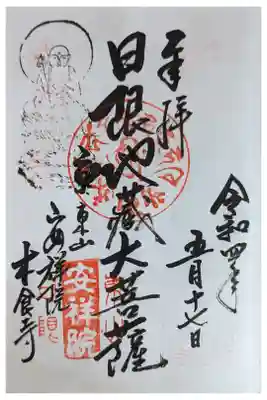 令和四年
五月十七日
奉拝
日限地藏大菩薩
京東山
安祥院
木食寺
安祥院